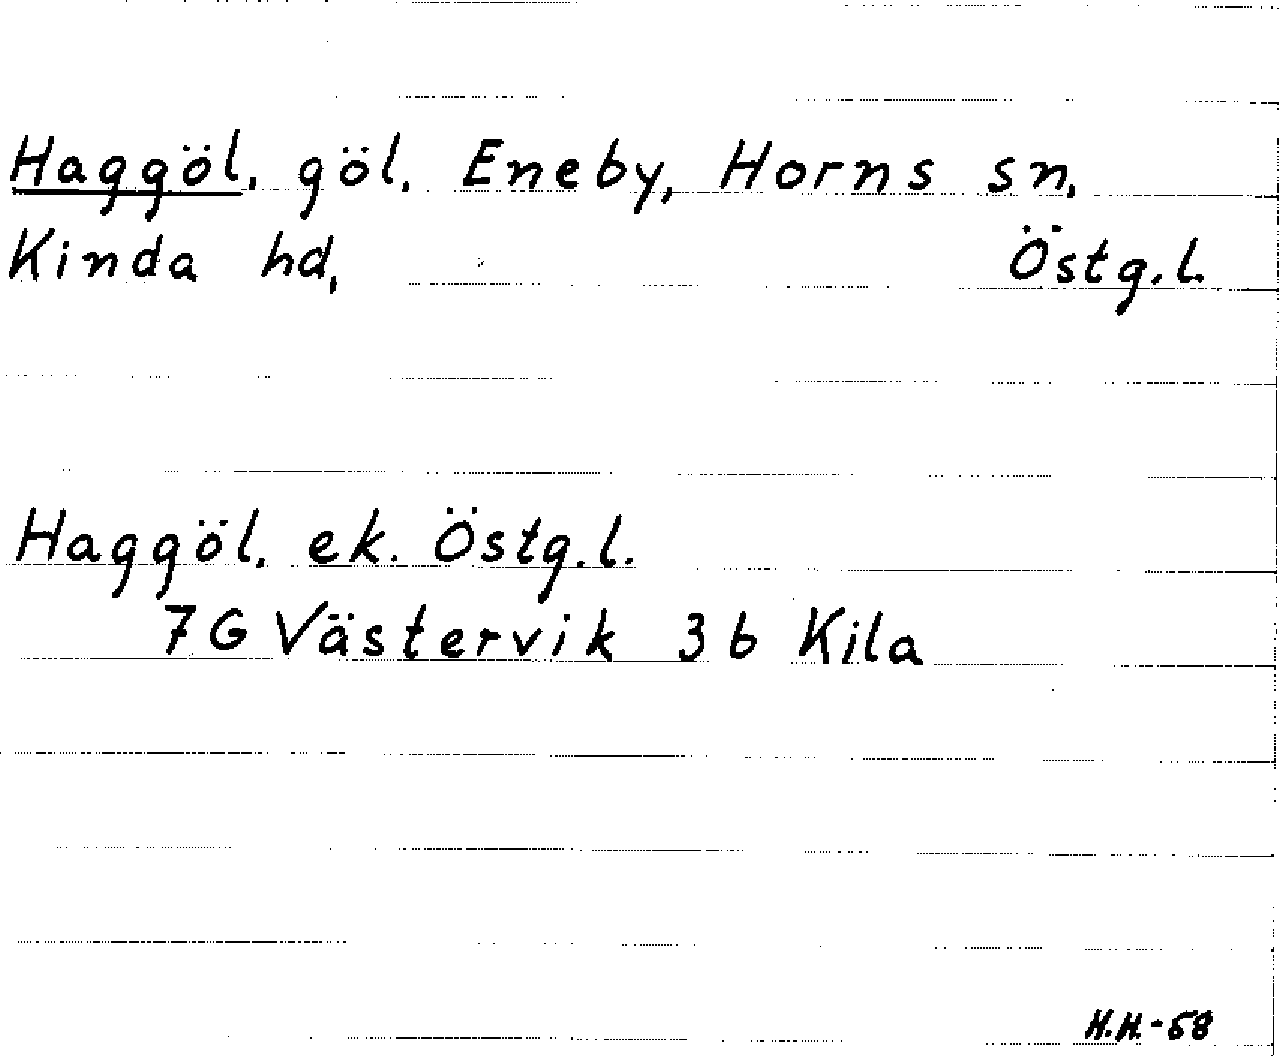 Haggöl, göl, Eneby, Horns sn,
Kinda hd, Östg.l.
Haggöl, ek. Östg.l.
7G Västervik 3b Kila
H.H.-58